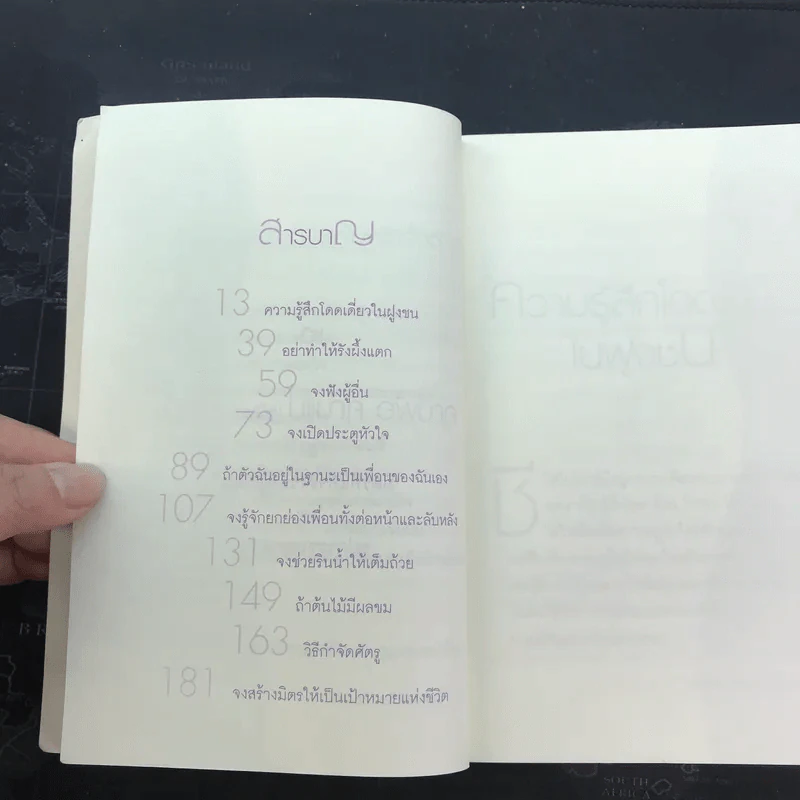 สารบาญ
13 ความรู้สึกโดดเดี่ยวในฝูงชน
39 อย่าทำให้รังผึ้งแตก
59 จงฟังผู้อื่น
73 จงเปิดประตูหัวใจ
89 ถ้าตัวฉันอยู่ในฐานะเป็นเพื่อนของฉันเอง
107 จงรู้จักยกย่องเพื่อนทั้งต่อหน้าและลับหลัง
131 จงช่วยรินน้ำให้เต็มถ้วย
149 ถ้าต้นไม้มีผลขม
163 วิธีกำจัดศัตรู
181 จงสร้างมิตรให้เป็นเป้าหมายแห่งชีวิต
SOUTH
AFRICA